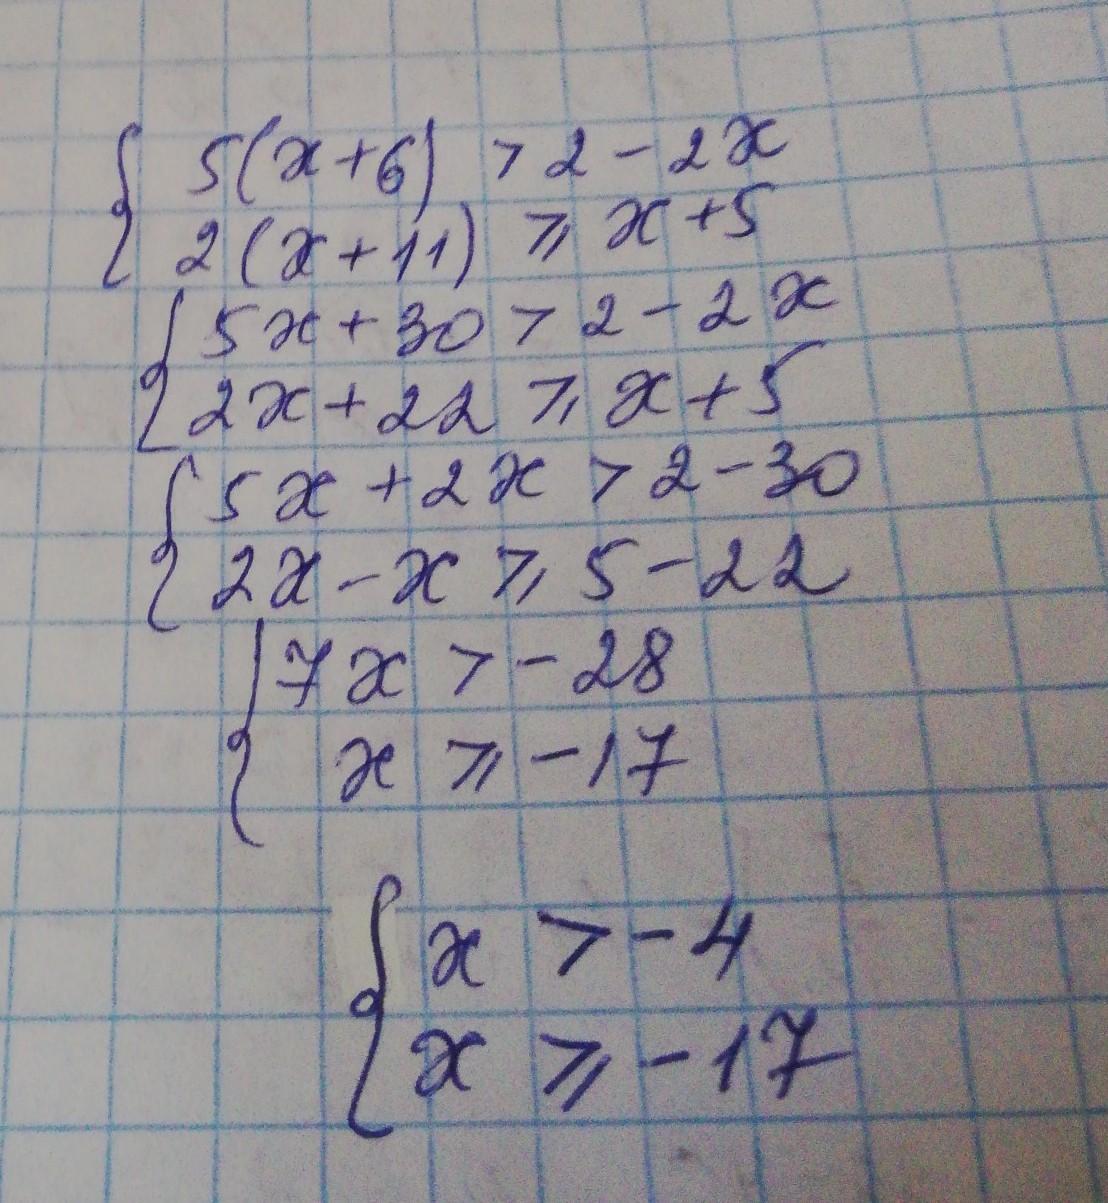 5(x+6) > 2 - 2x
2(x+11) ⩾ x+5
5x + 30 > 2 - 2x
2x + 22 ⩾ x + 5
5x + 2x > 2 - 30
2x - x ⩾ 5 - 22
7x > - 28
x ⩾ - 17
x > - 4
x ⩾ - 17